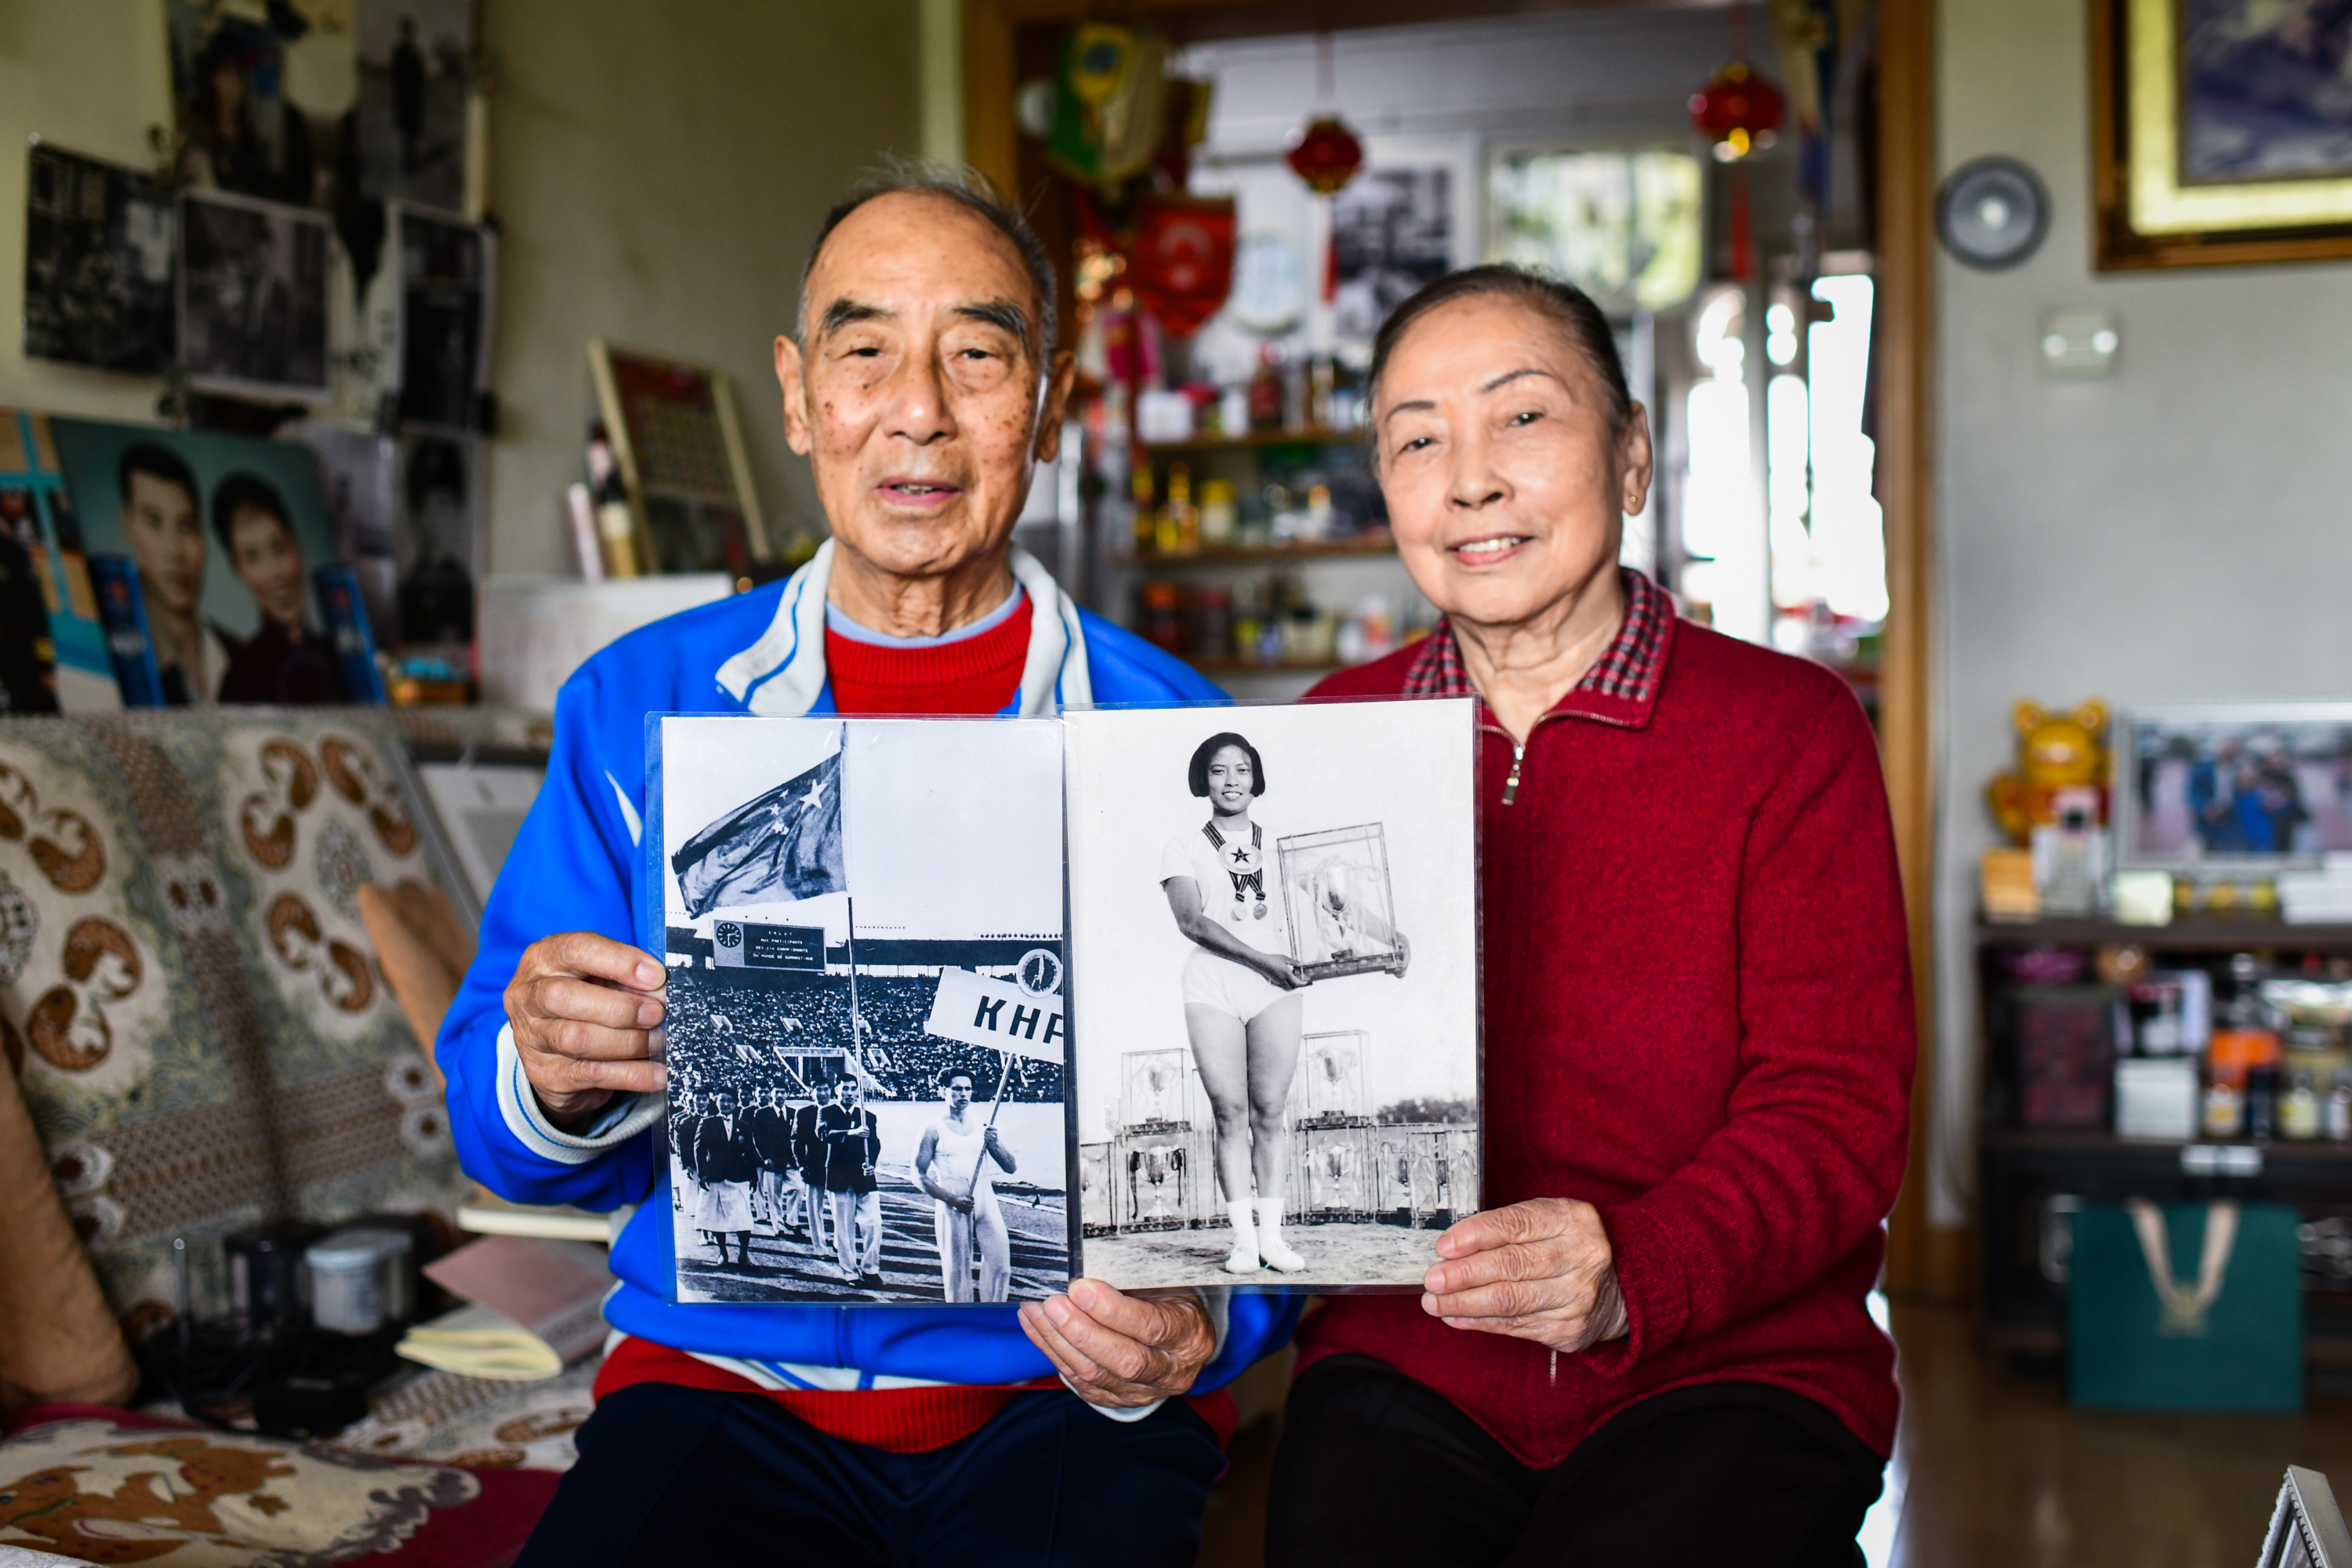 SALUT
AUX PARTICIPANTS
DES XIV CHAMPIONNATS
DU MONDE DE GYMNASTIQUE
КНР